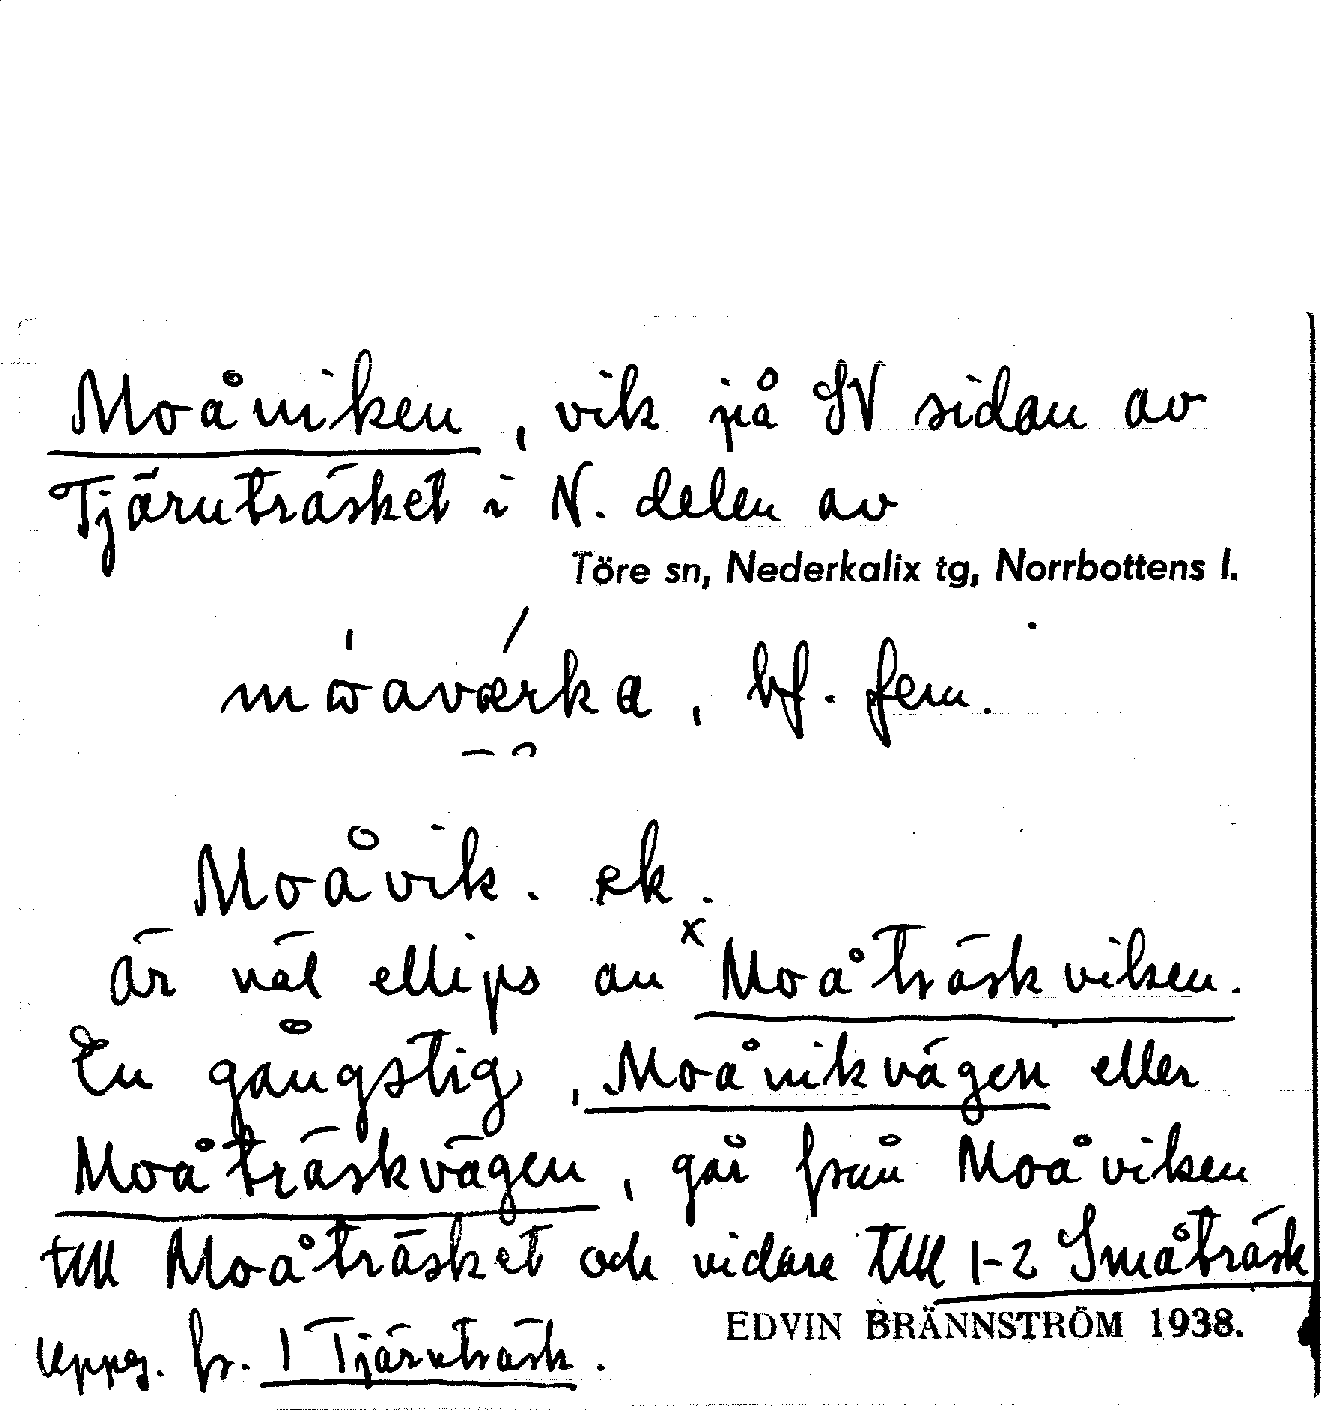 Moåviken, vik på SV sidan av
Tjärnträsket i N. delen av
Töre sn, Nederkalix tg, Norrbottens l.
bf. fem.
Moåvik. ek.
är väl ellips av x Moåträskviken.
En gångstig, Moåvikvägen eller
Moåträskvägen, går från Moåviken
till Moåträsket och vidare till 1-2 Småträsk
EDVIN BRÄNNSTRÖM 1938.
Uppg. fr. 1 Tjärnträsk.